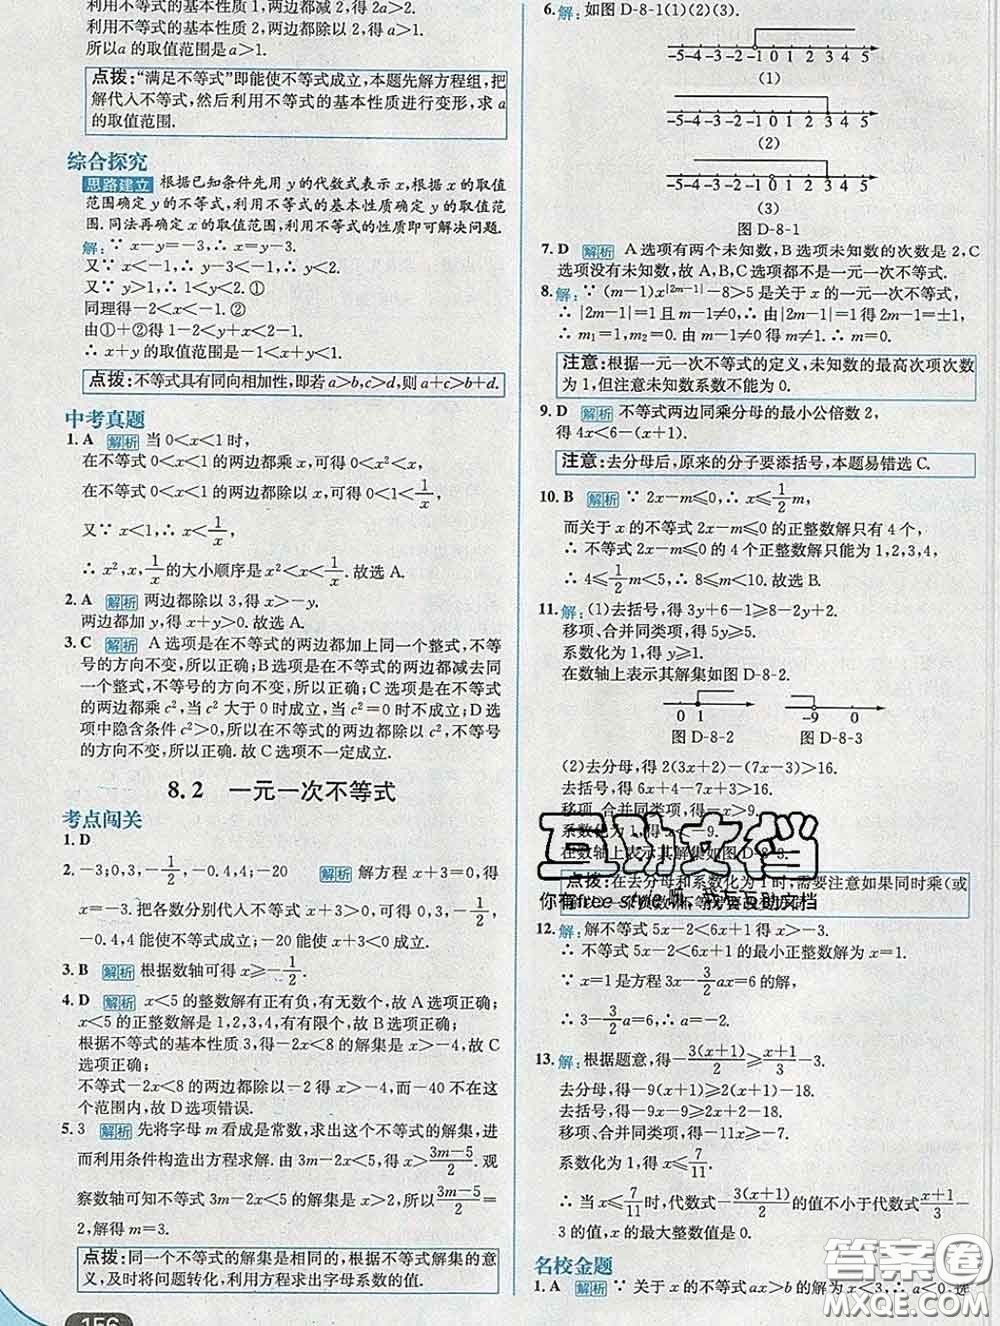 利用不等式的基本性质1,两边都减2,得2a>2.
利用不等式的基本性质2,两边都除以2,得a>1.
所以a的取值范围是a>1.
点拨:“满足不等式”即能使不等式成立,本题先解方程组,把
解代入不等式,然后利用不等式的基本性质进行变形,求a
的取值范围.
综合探究
思路建立 根据已知条件先用y的代数式表示x,根据x的取值
范围确定y的不等式,利用不等式的基本性质确定y的取值范
围.同法再确定x的取值范围,利用不等式的性质即可解决问题.
解:∵ x-y=-3,∴ x=y-3.
又∵ x<-1,∴ y-3<-1,∴ y<2.
又∵ y>1,∴ 1<y<2.①
同理得-2<x<-1.②
由①+②得1-2<y+x<2-1.
∴ x+y的取值范围是-1<x+y<1.
点拨:不等式具有同向相加性,即若a>b,c>d,则a+c>b+d.
中考真题
1. A 解析 当0<x<1时,
在不等式0<x<1的两边都乘x,可得0<x²<x.
在不等式0<x<1的两边都除以x,可得0<1<1/x,
又∵ x<1,∴ x<1/x,
∴ x²,x,1/x的大小顺序是x²<x<1/x.故选A.
2. A 解析 两边都除以3,得x>-y.
两边都加y,得x+y>0.故选A.
3. C 解析 A选项是在不等式的两边都加上同一个整式,不等
号的方向不变,所以正确;B选项是在不等式的两边都减去同
一个整式,不等号的方向不变,所以正确;C选项是在不等式
的两边都乘c²,当c²大于0时成立,当c²=0时不成立;D选
项中隐含条件c²>0,所以在不等式的两边都除以c²,不等号
的方向不变,所以正确.故C选项不一定成立.
8.2 一元一次不等式
考点闯关
1. D
2. -3;0,3,-1/2,-0.4,4;-20 解析 解方程x+3=0,得
x=-3.把各数分别代入不等式x+3>0,可得0,3,-1/2,
-0.4,4能使不等式成立;-20能使x+3<0成立.
3. B 解析 根据数轴可得x≥-1/2.
4. D 解析 x<5的整数解有正有负,有无数个,故A选项正确;
x<5的正整数解是1,2,3,4,有有限个,故B选项正确;
根据不等式的基本性质3,得-2x<8的解集是x>-4,故C
选项正确;
不等式-2x<8的两边都除以-2得x>-4,而-40不在这
个范围内,故D选项错误.
5. 3 解析 先将字母m看成是常数,求出这个不等式的解集,进
而利用条件构造出方程求解.由3m-2x<5,得x>(3m-5)/2.观
察数轴可知不等式3m-2x<5的解集是x>2,所以(3m-5)/2=
2,解得m=3.
点拨:同一个不等式的解集是相同的,根据不等式解集的意
义,及时将问题转化,利用方程求出字母系数的值.
156
6. 解:如图D-8-1(1)(2)(3).
-5-4-3-2-1 0 1 2 3 4 5
(1)
-5-4-3-2-1 0 1 2 3 4 5
(2)
-5-4-3-2-1 0 1 2 3 4 5
(3)
图D-8-1
7. D 解析 A选项有两个未知数,B选项未知数的次数是2,C
选项没有未知数,故A,B,C选项都不是一元一次不等式.
8. 解:∵ (m-1)x^|2m-1|-8>5是关于x的一元一次不等式,
∴ |2m-1|=1且m-1≠0,∴ 由|2m-1|=1得2m-1=±1,
∴ m₁=1,m₂=0.由m-1≠0得m≠1,∴ m=0.
注意:根据一元一次不等式的定义,未知数的最高次项次数
为1,但注意未知数系数不能为0.
9. D 解析 不等式两边同乘分母的最小公倍数2,
得4x<6-(x+1).
注意:去分母后,原来的分子要添括号,本题易错选C.
10. B 解析 ∵ 2x-m≤0,∴ x≤1/2m,
而关于x的不等式2x-m≤0的正整数解只有4个,
∴ 不等式2x-m≤0的4个正整数解只能为1,2,3,4,
∴ 4≤1/2m<5,∴ 8≤m<10.故选B.
11. 解:(1)去括号,得3y+6-1≥8-2y+2.
移项、合并同类项,得5y≥5.
系数化为1,得y≥1.
在数轴上表示其解集如图D-8-2.
0 1
图D-8-2
-9 0
图D-8-3
(2)去分母,得2(3x+2)-(7x-3)>16.
去括号,得6x+4-7x+3>16.
移项、合并同类项,得-x>9.
系数化为1,得x<-9.
在数轴上表示其解集如图D-8-3.
点拨:在去分母和系数化为1时,需要注意如果同时乘(或
互助文档
你有free style吗,我有互助文档
12. 解:解不等式5x-2<6x+1得x>-3.
∴ 不等式5x-2<6x+1的最小正整数解为x=1.
∵ x=1是方程3x-3/2ax=6的解,
∴ 3-3/2a=6,∴ a=-2.
13. 解:根据题意,得-3(x+1)/2≥(x+1)/3-3.
去分母,得-9(x+1)≥2(x+1)-18.
去括号,得-9x-9≥2x+2-18.
移项、合并同类项,得-11x≥-7.
系数化为1,得x≤7/11.
∴ 当x≤7/11时,代数式-3(x+1)/2的值不小于代数式(x+1)/3-
3的值,x的最大整数值是0.
名校金题
1. A 解析 ∵ 关于x的不等式ax>b的解为x<3,∴ a<0.
答案圈
MXQE.COM